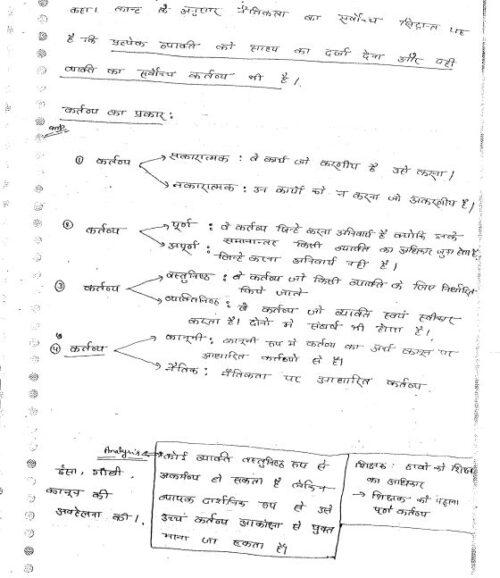 कहा। कान्ट के अनुसार नैतिकता का सर्वोच्च सिद्धान्त यह
है कि प्रत्येक व्यक्ति को साध्य का दर्जा देना और यही
व्यक्ति का सर्वोच्च कर्तव्य भी है।
कर्तव्य का प्रकार :
① कर्तव्य → सकारात्मक : वे कार्य जो करणीय है उसे करना।
→ नकारात्मक : उन कार्यों को न करना जो अकरणीय है।
② कर्तव्य → पूर्ण : वे कर्तव्य जिन्हें करना अनिवार्य है क्योंकि उनके
समानान्तर किसी व्यक्ति का अधिकार जुड़ा होता है
→ अपूर्ण : जिन्हें करना अनिवार्य नहीं है।
③ कर्तव्य → वस्तुनिष्ठ : वे कर्तव्य जो किसी व्यक्ति के लिए निर्धारित
किये जाते
→ व्यक्तिनिष्ठ : वे कर्तव्य जो व्यक्ति स्वयं स्वीकार
करता है। दोनों में संघर्ष भी होता है।
④ कर्तव्य → कानूनी : कानूनी रूप में कर्तव्य का अर्थ कानून पर
आधारित कर्तव्यों से है।
→ नैतिक : नैतिकता पर आधारित कर्तव्य
Analysis
ईसा, गाँधी
कानून की
अवहेलना की।
कोई व्यक्ति वस्तुनिष्ठ रूप से
अकर्मण्य हो सकता है लेकिन
व्यापक दार्शनिक रूप से उसे
उच्च कर्तव्य आकांक्षा से युक्त
माना जा सकता है।
शिक्षक : छात्रों को शिक्षा
का अधिकार
→ शिक्षक को पढ़ाना
पूर्ण कर्तव्य